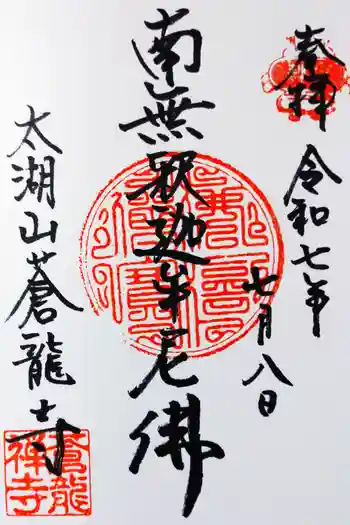 奉拝
令和七年
七月八日
南無釈迦牟尼佛
太湖山蒼龍寺
蒼龍
禅寺